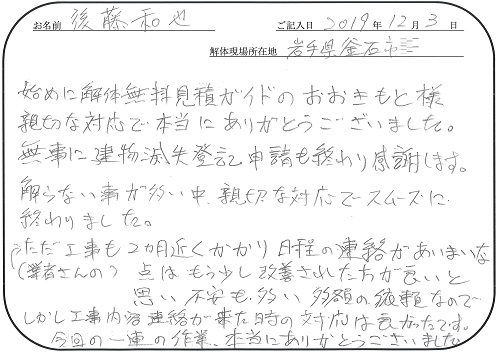 お名前 後藤和也 ご記入日 2019年12月3日
解体現場所在地 岩手県釜石市
始めに解体無料見積ガイドのおおきもと様
親切な対応で本当にありがとうございました。
無事に建物滅失登記申請も終わり感謝します。
解らない事が多い中、親切な対応でスムーズに
終わりました。
ただ工事も2ヵ月近くかかり日程の連絡があいまいな
(業者さんの) 点はもう少し改善された方が良いと
思い不安も多い多額の依頼なので
しかし工事内容連絡が来た時の対応は良かったです。
今回の一連の作業、本当にありがとうございました